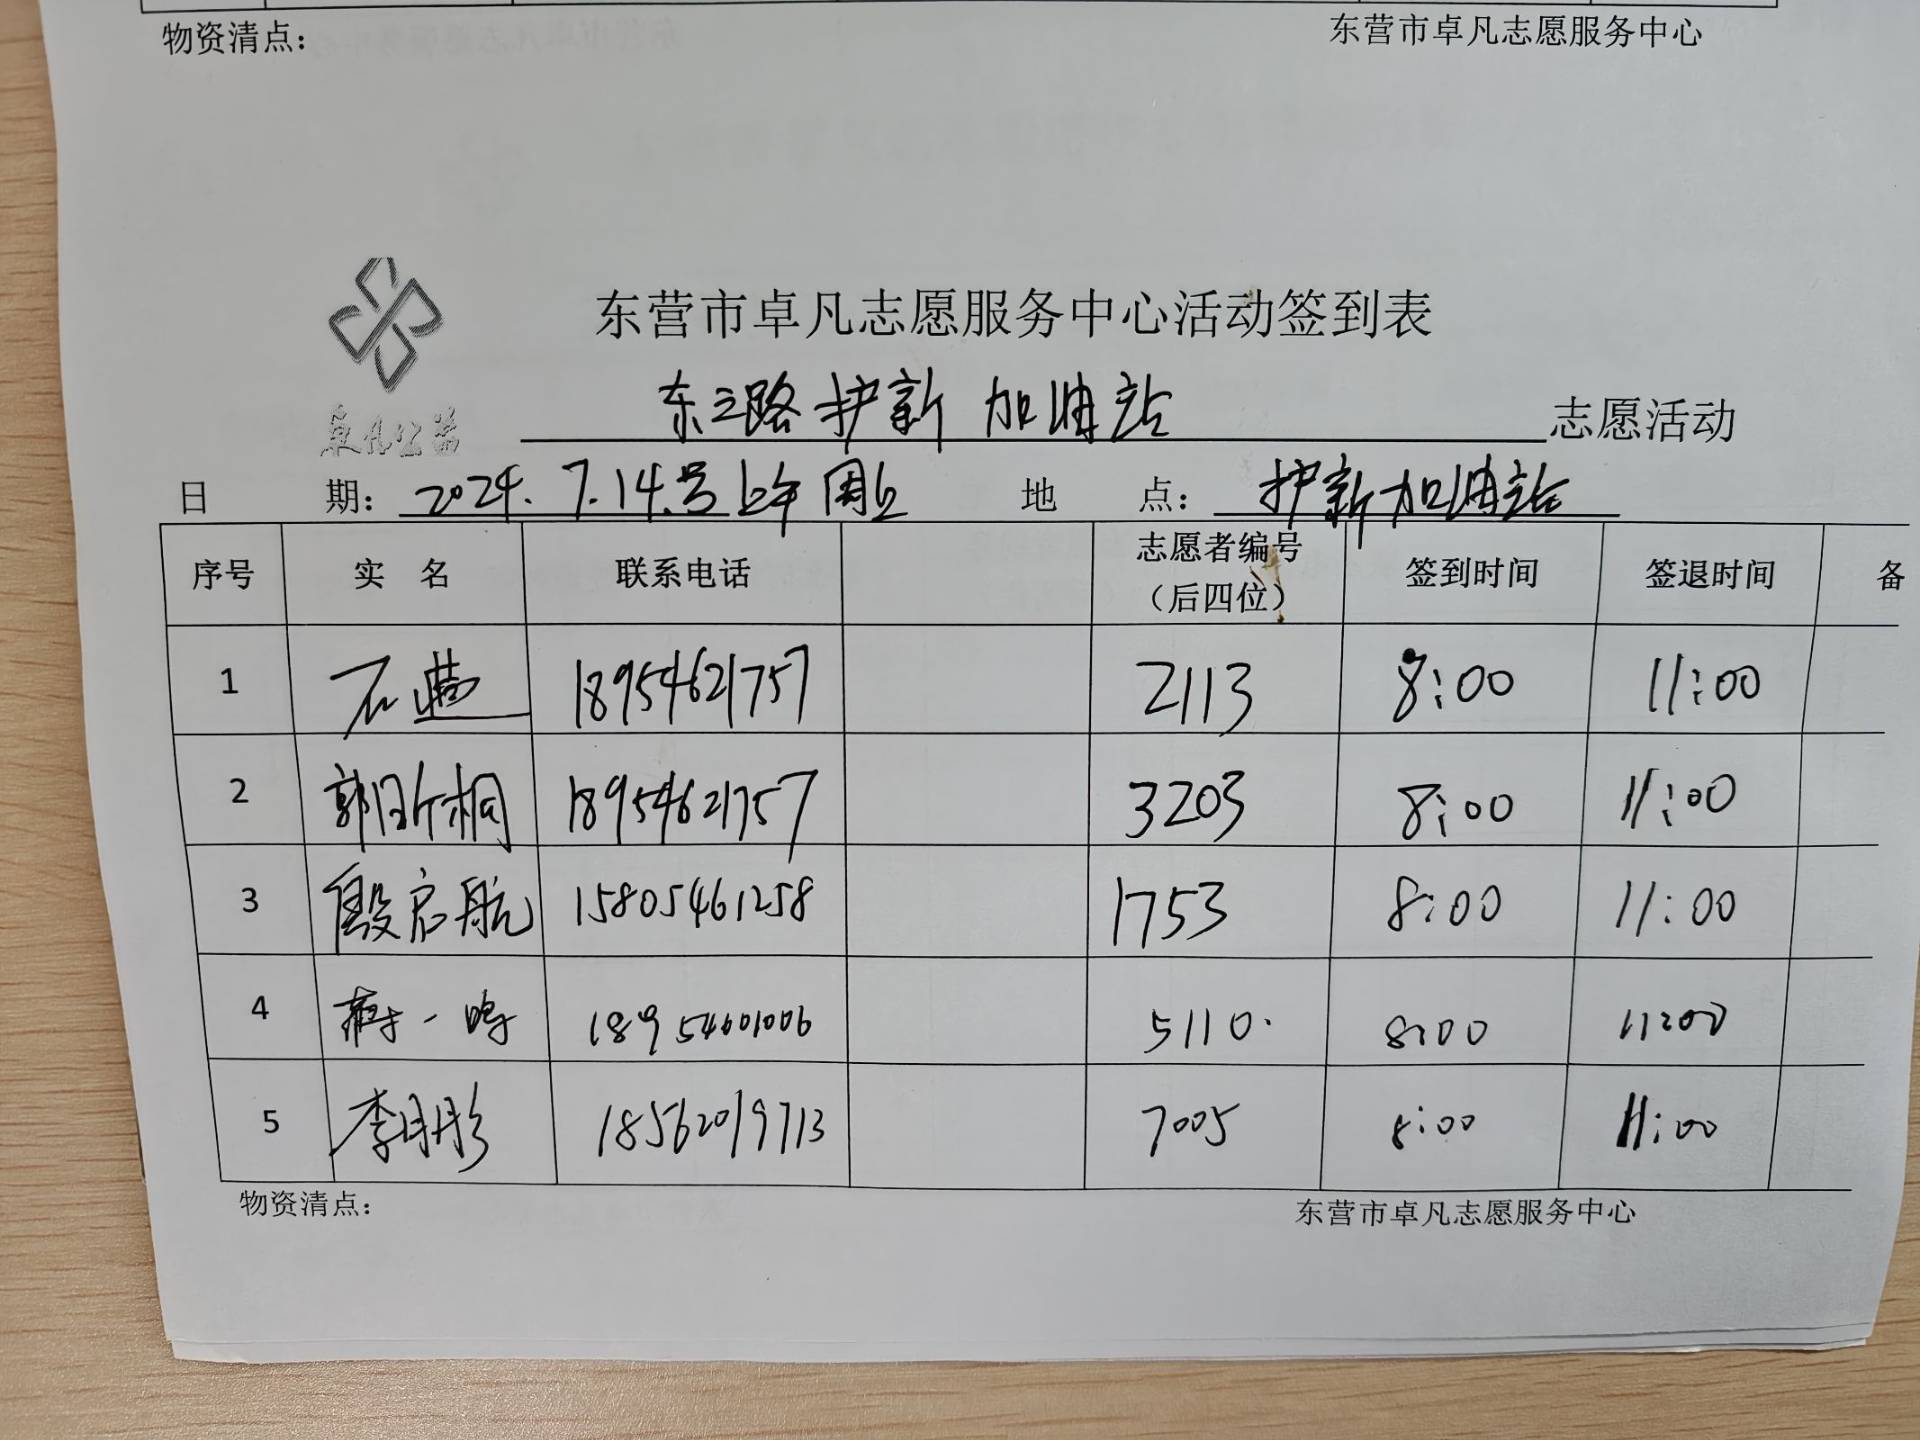 物资清点： 东营市卓凡志愿服务中心
东营市卓凡志愿服务中心活动签到表
卓凡公益
东三路护新加油站 志愿活动
日 期：2024.7.14.号上午 地 点：护新加油站
序号 实 名 联系电话 志愿者编号（后四位） 签到时间 签退时间 备
1 石 18954621757 2113 8:00 11:00
2 郭昕桐 18954621757 3203 8:00 11:00
3 殷启航 15805461258 1753 8:00 11:00
4 蒋一鸣 18954601006 5110. 8:00 11:00
5 李明彤 18562019713 7005 8:00 11:00
物资清点： 东营市卓凡志愿服务中心